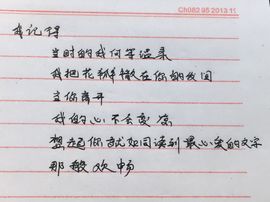 Ch082 95 2013
我记得
当时的我何等温柔
我把花瓣撒在你的发间
当你离开
我的心不会变凉
想起你就如同读到最心爱的文字
那般欢畅